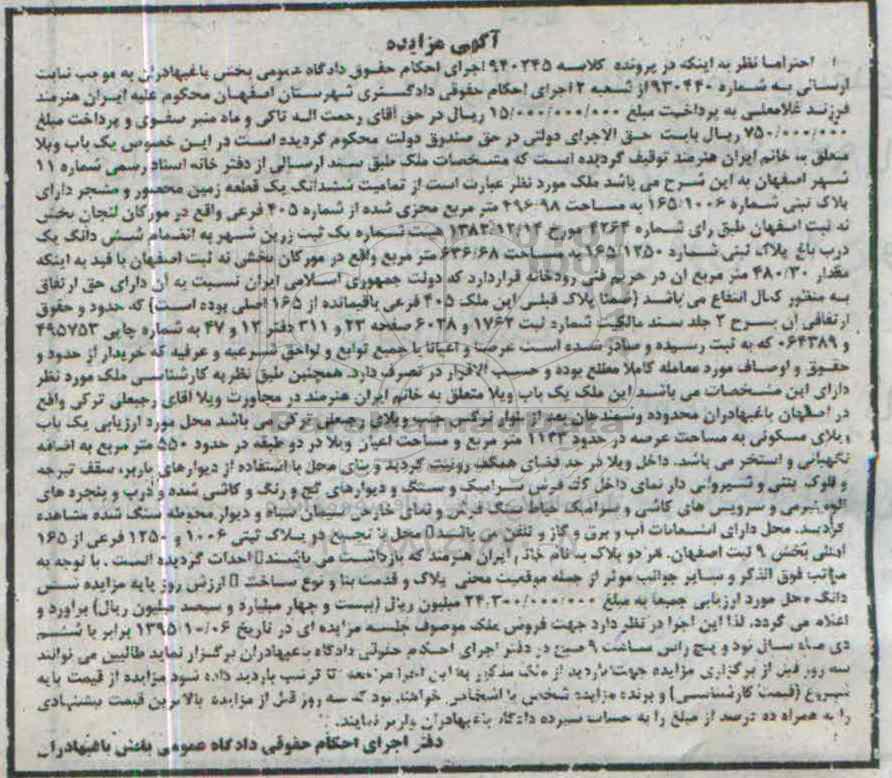 آگهی مزایده
احتراما نظر به اینکه در پرونده کلاسه ۹۴۰۲۴۵ اجرای احکام حقوقی دادگاه عمومی بخش باغبهادران به موجب نیابت
ارسالی به شماره ۹۳۰۴۴۰ از شعبه ۲ اجرای احکام حقوقی دادگستری شهرستان اصفهان محکوم علیه ایران هنرمند
فرزند غلامعلی به پرداخت مبلغ ۱۵/۰۰۰/۰۰۰/۰۰۰ ریال در حق آقای رحمت اله تاکی و ماه منیر صفوی و پرداخت مبلغ
۷۵۰/۰۰۰/۰۰۰ ریال بابت حق الاجرای دولتی در حق صندوق دولت محکوم گردیده است در این خصوص یک باب ویلا
متعلق به خانم ایران هنرمند توقیف گردیده است که مشخصات ملک طبق سند ارسالی از دفتر خانه اسناد رسمی شماره ۱۱
شهر اصفهان به این شرح می باشد ملک مورد نظر عبارت است از تمامیت ششدانگ یک قطعه زمین محصور و مشجر دارای
پلاک ثبتی شماره ۱۶۵/۱۰۰۶ به مساحت ۴۹۶/۹۸ متر مربع مجزی شده از شماره ۴۰۵ فرعی واقع در مورکان لنجان بخش
نه ثبت اصفهان طبق رای شماره ۴۲۶۴ مورخ ۱۳۸۳/۱۲/۱۴ هیت شماره یک ثبت زرین شهر به انضمام شش دانگ یک
درب باغ پلاک ثبتی شماره ۱۶۵/۱۲۵۰ به مساحت ۶۳۶/۶۸ متر مربع واقع در مورکان بخشی نه ثبت اصفهان با قید به اینکه
مقدار ۴۸۰/۳۰ متر مربع آن در حریم فنی رودخانه قراردارد که دولت جمهوری اسلامی ایران نسبت به آن دارای حق ارتفاق
به منظور کمال انتفاع می باشد (ضمنا پلاک قبلی این ملک ۴۰۵ فرعی باقیمانده از ۱۶۵ اصلی بوده است) که حدود و حقوق
ارتفاقی آن بشرح ۲ جلد سند مالکیت شماره ثبت ۱۷۶۲ و ۶۰۲۸ صفحه ۲۳ و ۳۱۱ دفتر ۱۲ و ۴۷ به شماره چاپی ۴۹۵۷۵۳
و ۰۶۴۳۸۹ که به ثبت رسیده و صادر شده است عرصتا و اعیانا با جمیع توابع و لواحق شرعیه و عرفیه که خریدار از حدود و
حقوق و اوصاف مورد معامله کاملا مطلع بوده و حسب الاقرار در تصرف دارد. همچنین طبق نظریه کارشناسی ملک مورد نظر
دارای این مشخصات می باشد این ملک یک باب ویلا متعلق به خانم ایران هنرمند در مجاورت ویلا آقای رجبعلی ترکی واقع
در اصفهان باغبهادران محدوده وشمندجان بعد از بلوار نرگس جنب ویلای رجبعلی ترکی می باشد محل مورد ارزیابی یک باب
ویلای مسکونی به مساحت عرصه در حدود ۱۱۳۳ متر مربع و مساحت اعیان ویلا در دو طبقه در حدود ۵۵۰ متر مربع به اضافه
نگهبانی و استخر می باشد. داخل ویلا در حد فضای همکف رویت گردید و بنای محل با استفاده از دیوارهای باربر، سقف تیرچه
و بلوک بتنی و شیروانی دار نمای داخل کف فرش سرامیک و سنگ و دیوارهای گچ و رنگ و کاشی شده و درب و پنجره های
آلومینیومی و سرویس های کاشی و سرامیک حیاط سنگ فرش و نمای خارجی سیمان سیاه و دیوار محوطه سنگ شده مشاهده
گردید. محل دارای انشعابات آب و برق و گاز و تلفن می باشد محل با تجمیع دو پلاک ثبتی ۱۰۰۶ و ۱۲۵۰ فرعی از ۱۶۵
اصلی بخش ۹ ثبت اصفهان. هر دو پلاک به نام خانم ایران هنرمند که بازداشت می باشند احداث گردیده است. با توجه به
مراتب فوق الذکر و سایر جوانب موثر از جمله موقعیت محلی پلاک و قدمت بنا و نوع ساخت ارزش روز پایه مزایده شش
دانگ محل مورد ارزیابی جمعا به مبلغ ۲۴,۳۰۰/۰۰۰/۰۰۰ میلیون ریال (بیست و چهار میلیارد و سیصد میلیون ریال) براورد و
اعلام می گردد. لذا این اجرا در نظر دارد جهت فروش ملک موصوف جلسه مزایده ای در تاریخ ۱۳۹۵/۱۰/۰۶ برابر با ششم
دی ماه سال نود و پنج راس ساعت ۹ صبح در دفتر اجرای احکام حقوقی دادگاه باغبهادران برگزار نماید طالبین می توانند
سه روز قبل از برگزاری مزایده جهت بازدید از ملک مذکور به این اجرا مراجعه تا ترتیب بازدید داده شود مزایده از قیمت پایه
شروع (قیمت کارشناسی) و برنده مزایده شخص یا اشخاصی خواهند بود که سه روز قبل از مزایده بالاترین قیمت پیشنهادی
را به همراه ده درصد از مبلغ را به حساب سپرده دادگاه باغبهادران واریز نمایند.
دفتر اجرای احکام حقوقی دادگاه عمومی بخش باغبهادران